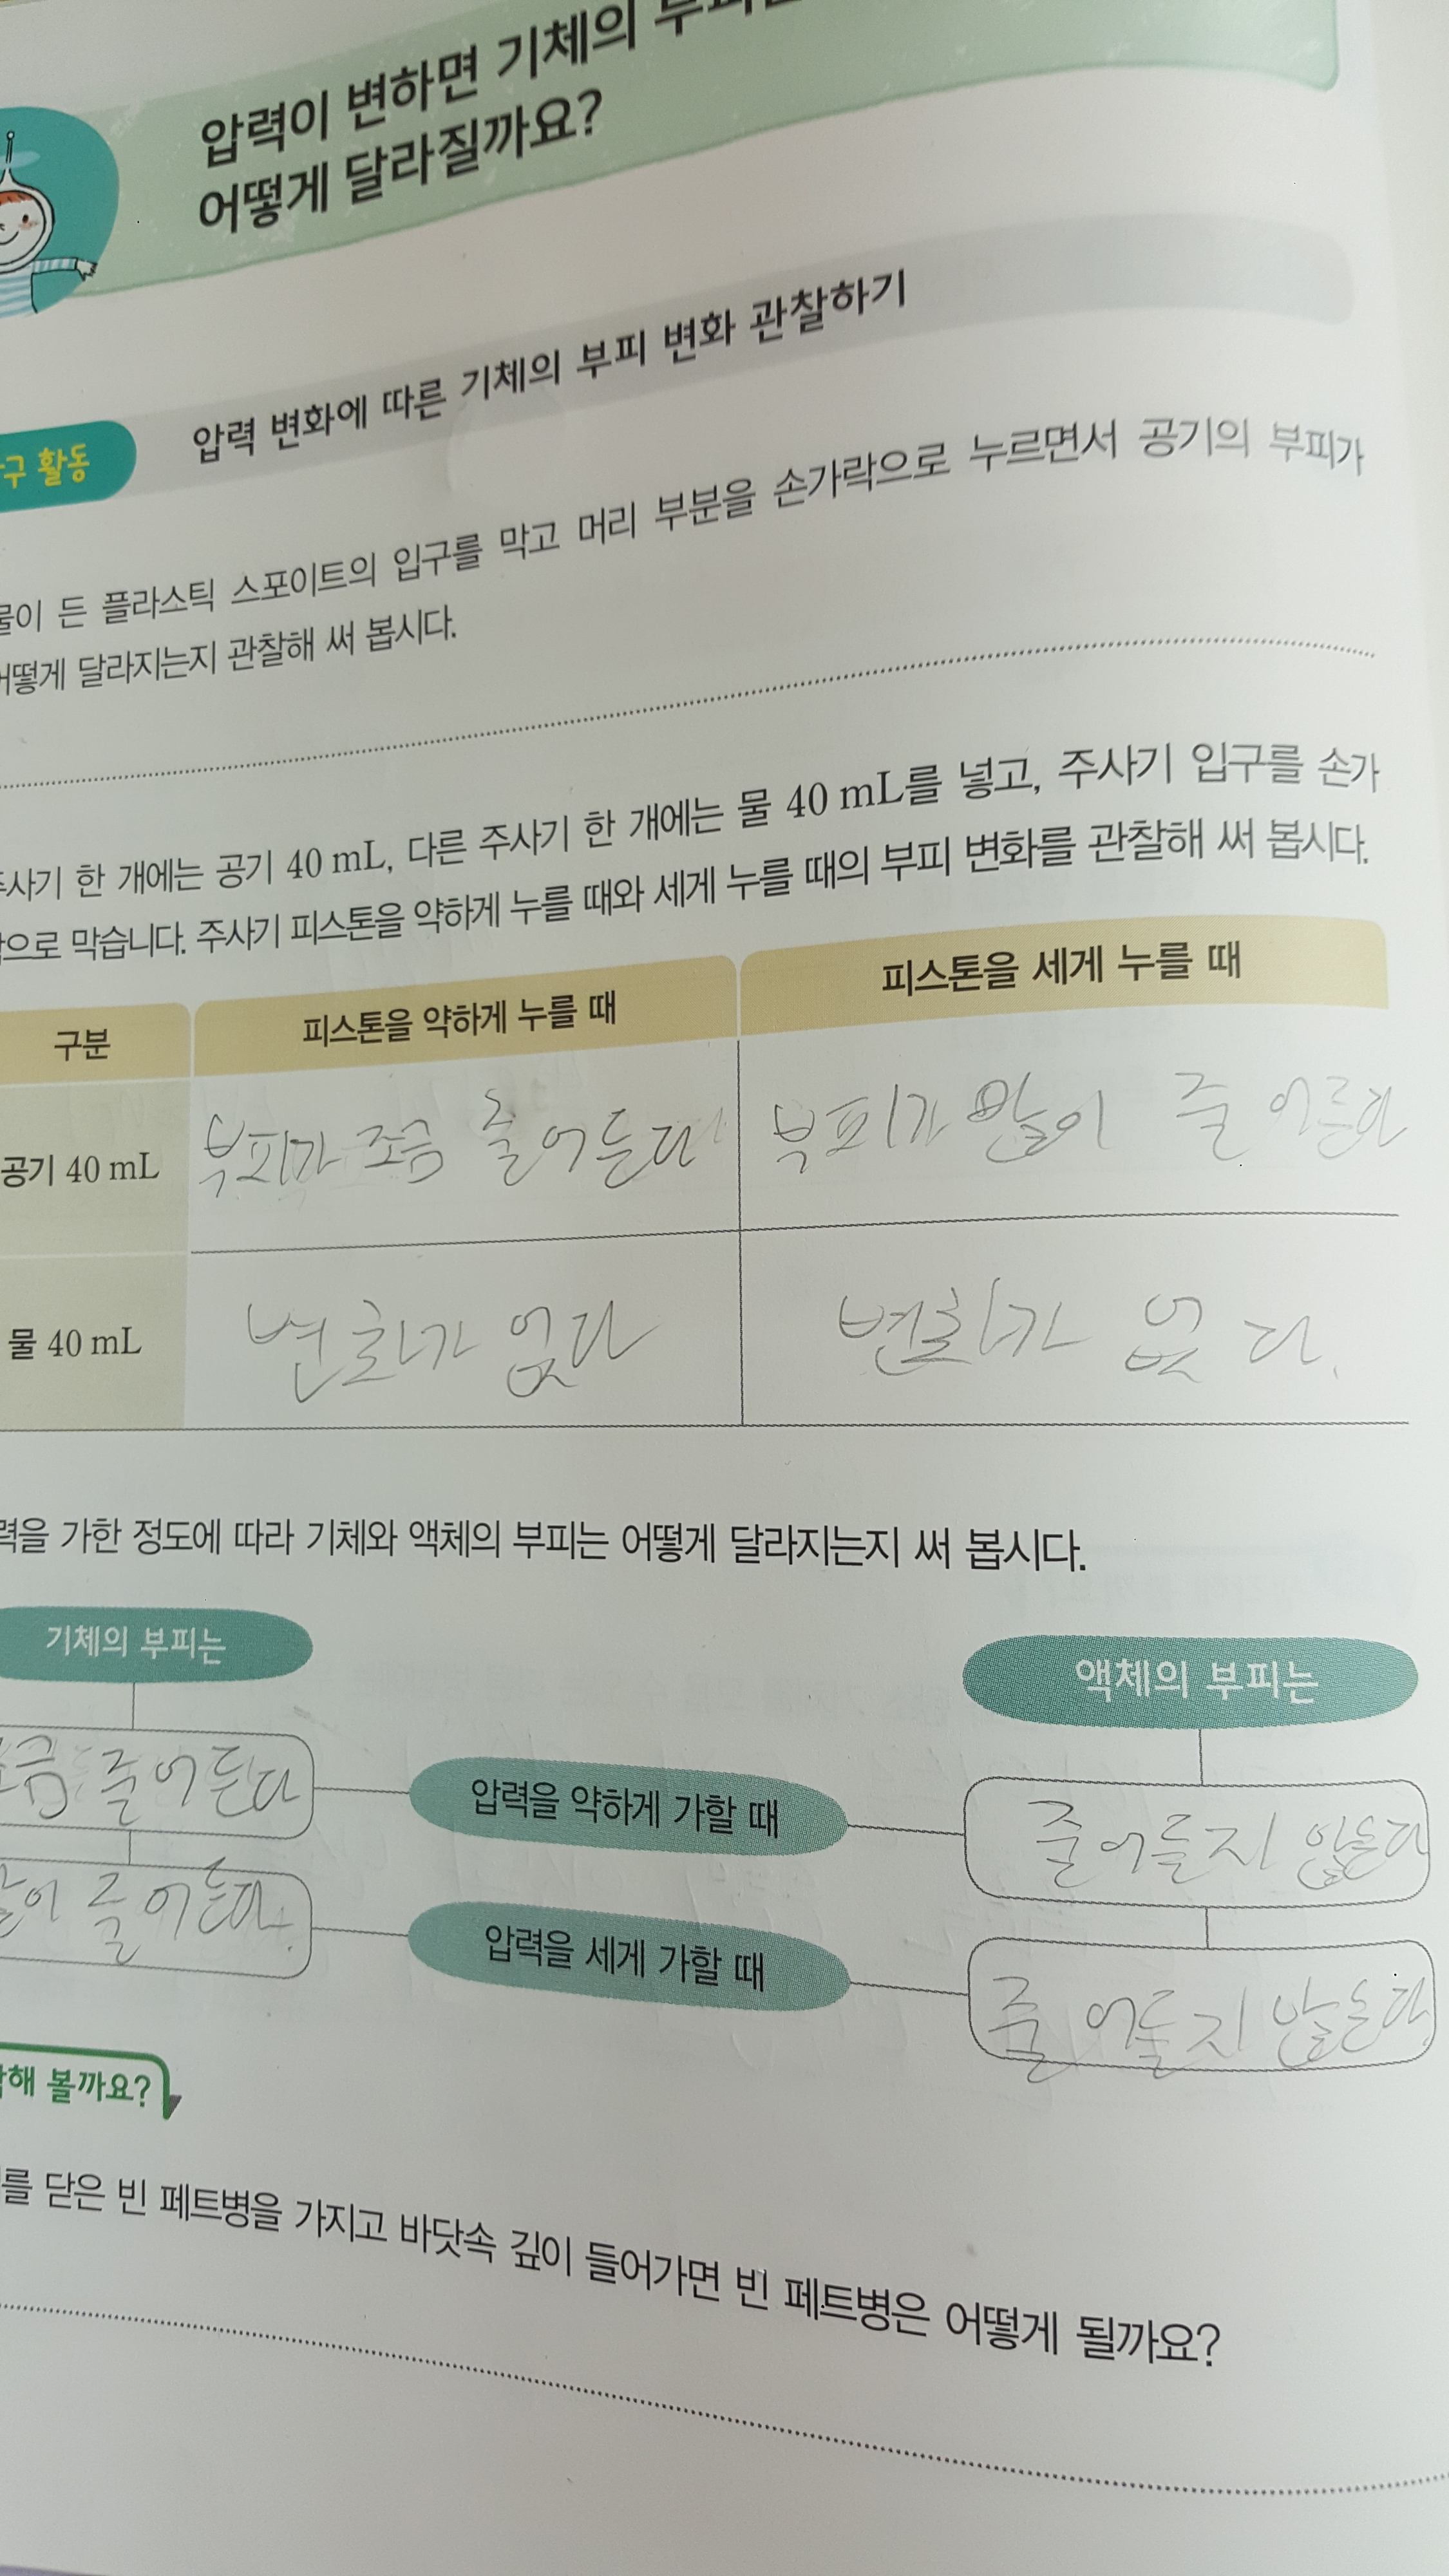 압력이 변하면 기체의
어떻게 달라질까요?
활동
압력 변화에 따른 기체의 부피 변화 관찰하기
든 플라스틱 스포이트의 입구를 막고 머리 부분을 손가락으로 누르면서 공기의 부피가
달라지는지 관찰해 써 봅시다.
한 개에는 공기 40 mL, 다른 주사기 한 개에는 물 40 mL를 넣고, 주사기 입구를 손가
막습니다. 주사기 피스톤을 약하게 누를 때와 세게 누를 때의 부피 변화를 관찰해 써 봅시다.
구분 피스톤을 약하게 누를 때 피스톤을 세게 누를 때
공기 40 mL 부피가 조금 줄어든다 부피가 많이 줄어든다
물 40 mL 변화가 없다 변화가 없다.
가한 정도에 따라 기체와 액체의 부피는 어떻게 달라지는지 써 봅시다.
기체의 부피는 액체의 부피는
줄어든다 압력을 약하게 가할 때 줄어들지 않는다
줄어든다. 압력을 세게 가할 때 줄어들지 않는다.
볼까요?
닫은 빈 페트병을 가지고 바닷속 깊이 들어가면 빈 페트병은 어떻게 될까요?